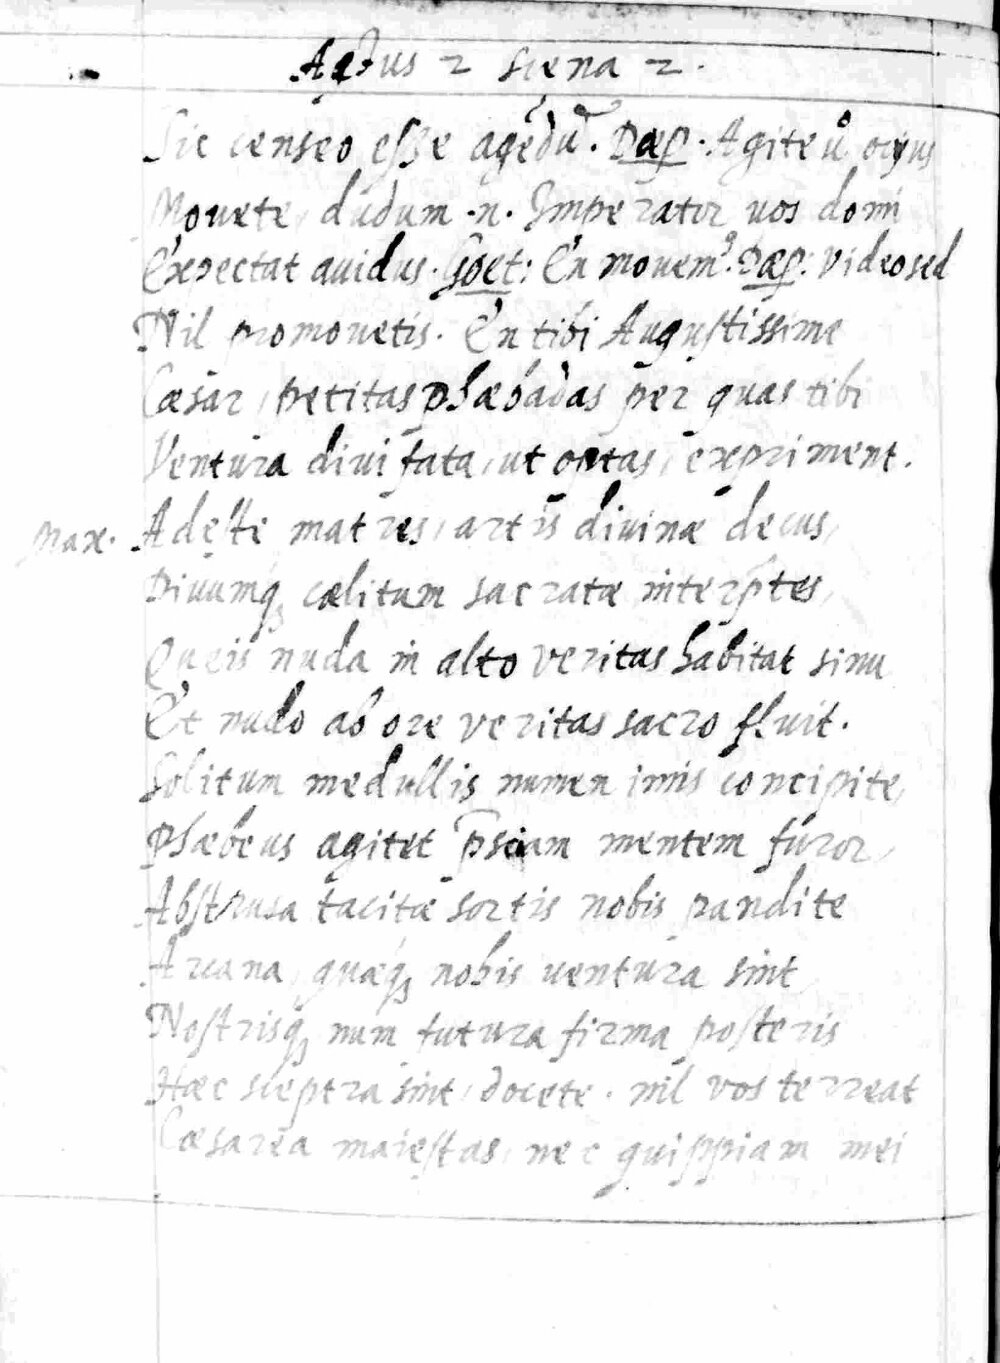 Actus 2 Scena 2.
Sic censeo esse agedū. Dæp. Agite ů ocyus
Movete, dudum .n. Imperator vos domi
Expectat avidus. Goet: En movem⁹. Dæp: video sed
Nil promovetis. En tibi Augustissime
Cæsar, petitas phæbadas per quas tibi
Ventura divi fata, ut optas, expriment.
Max. Adeste matres, artis divinæ decus,
Divumq; cælitum sacratæ interp̃tes,
Queis nuda in alto veritas habitat sinu
Et nudo ab ore veritas sacro fluit.
Solitum medullis numen imis concipite,
Phæbeus agitet p̄sciam mentem furor,
Abstrusa tacitæ sortis nobis pandite
Arcana, quæq; nobis ventura sint,
Nostrisq; num futura firma posteris
Hæc sceptra sint, docete. nil vos terreat
Cæsarea maiestas, nec quispiam mei